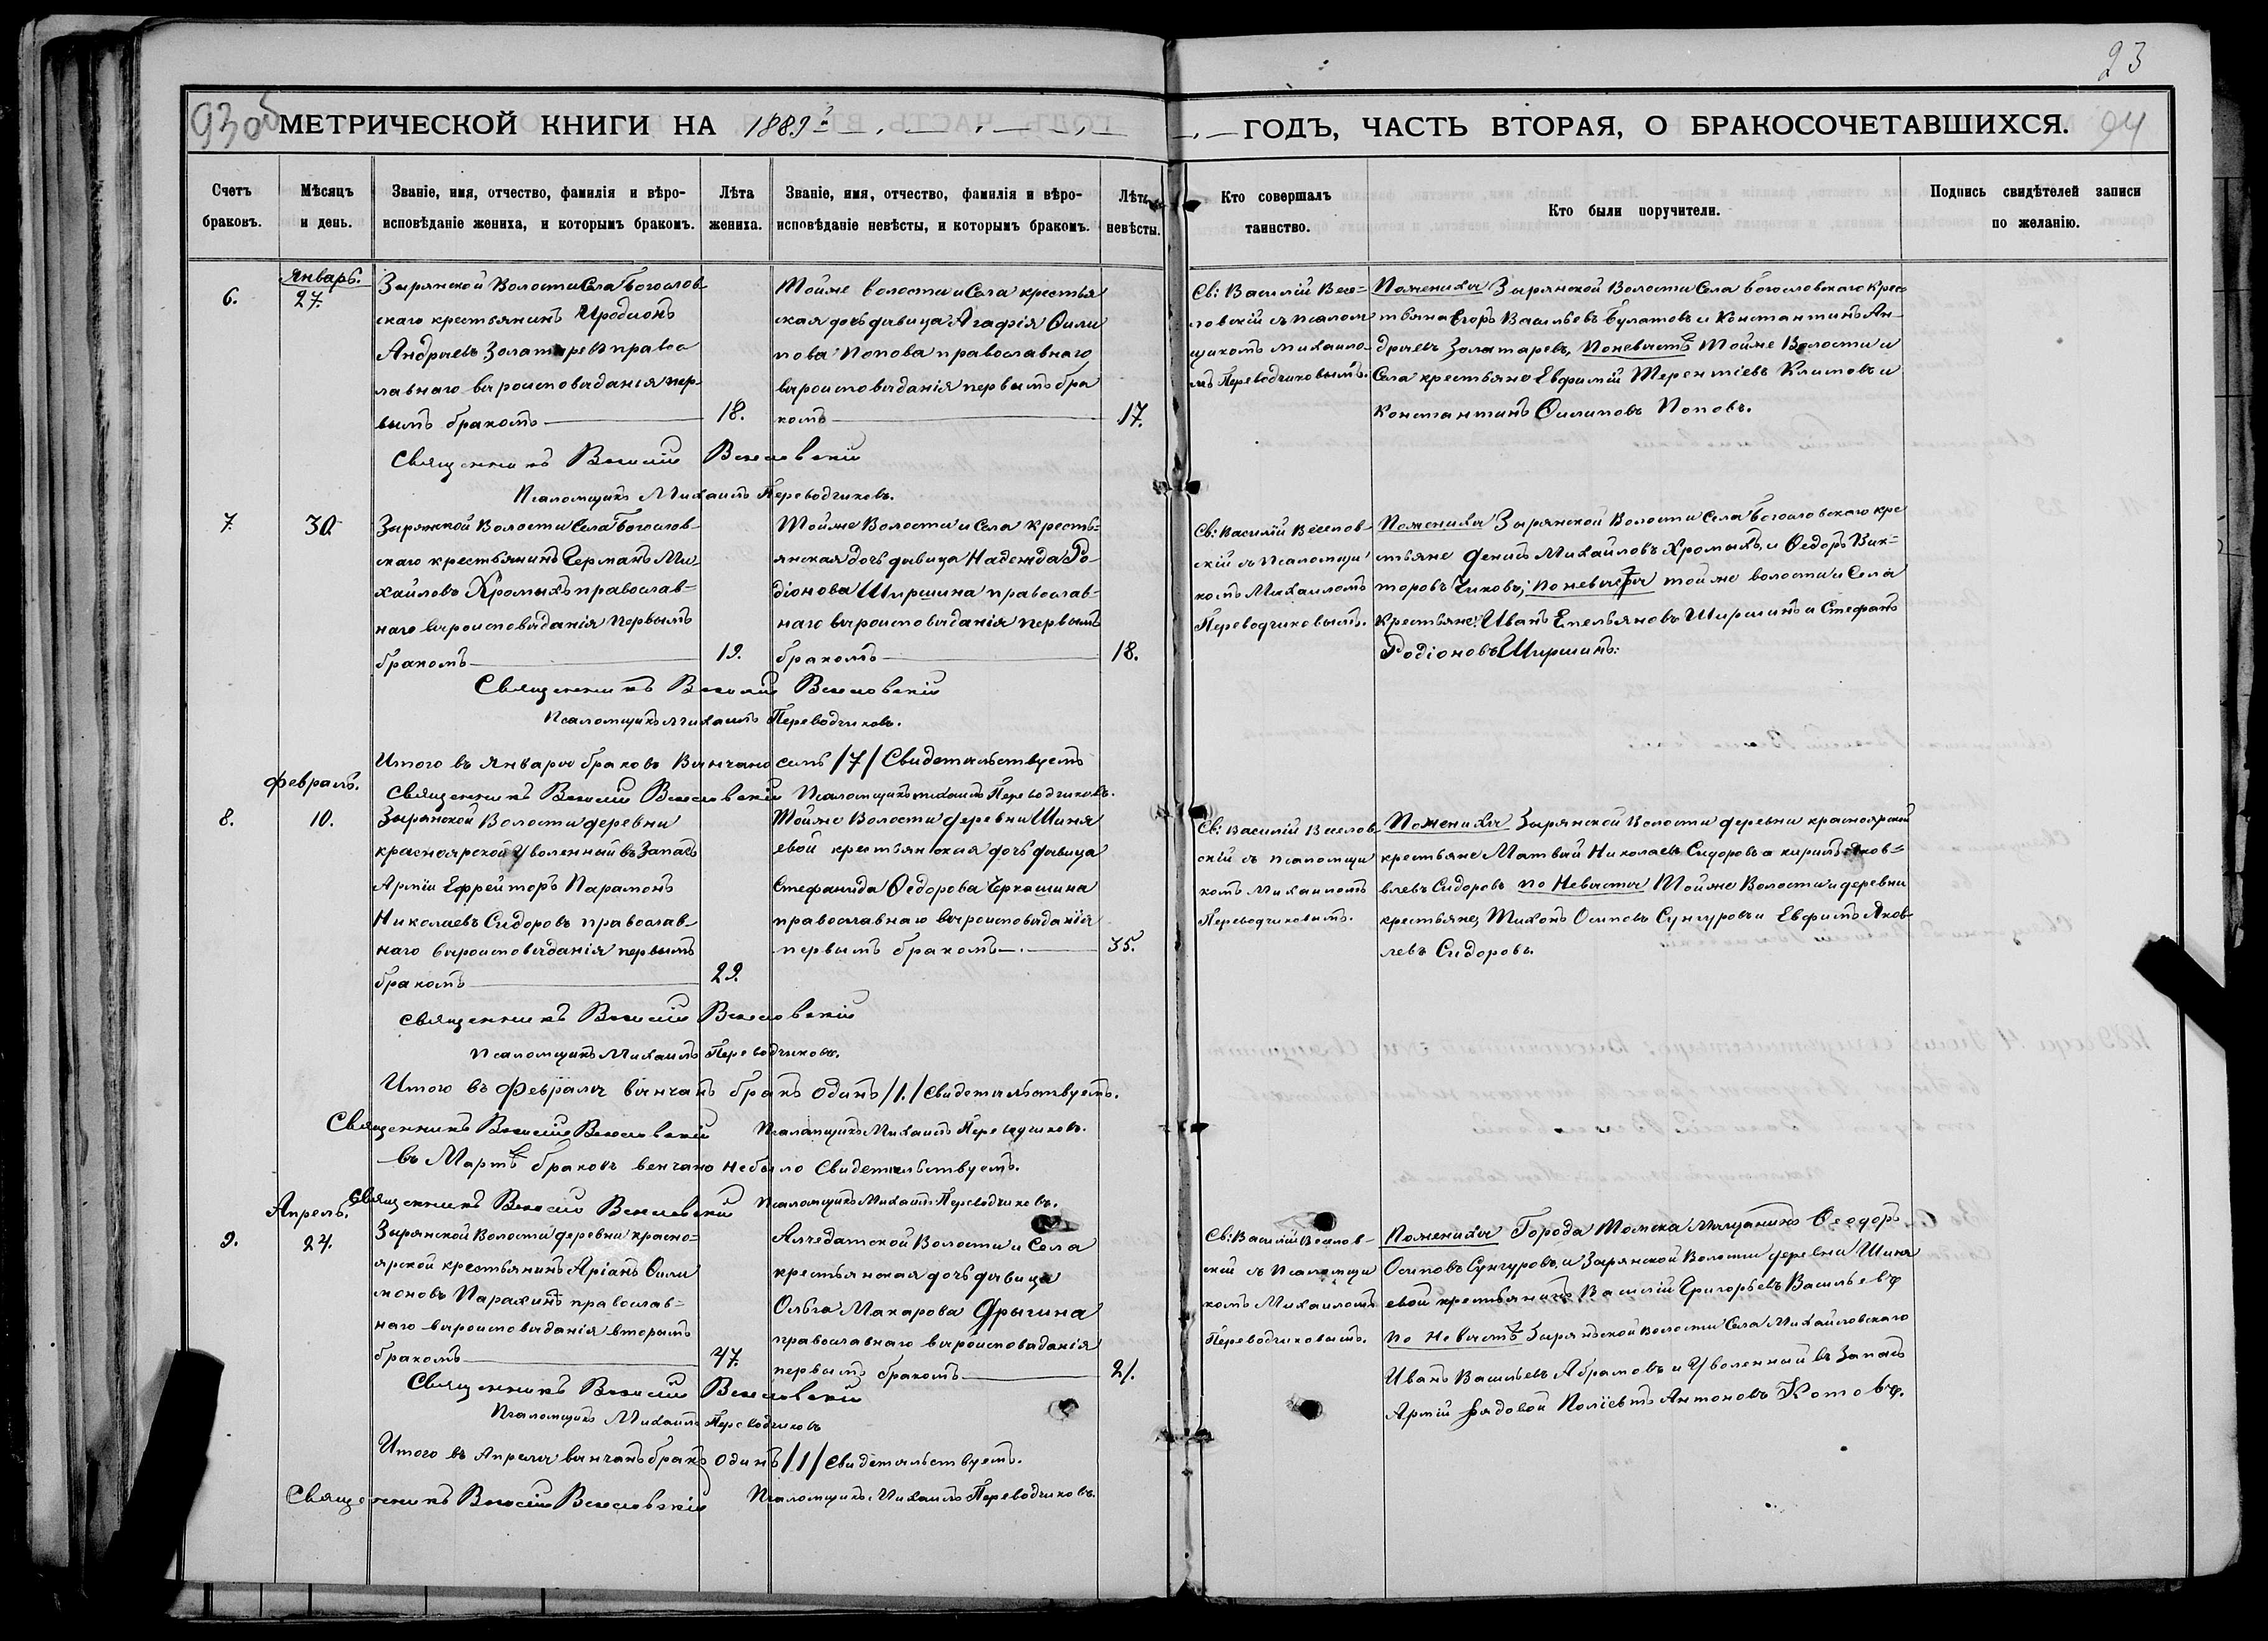 23
93об
94
МЕТРИЧЕСКОЙ КНИГИ НА 1889й
ГОДЪ, ЧАСТЬ ВТОРАЯ, О БРАКОСОЧЕТАВШИХСЯ.
Счетъ
браковъ.
Мѣсяцъ
и день.
Званіе, имя, отчество, фамилія и вѣро-
исповѣданіе жениха, и которымъ бракомъ.
Лѣта
жениха.
Званіе, имя, отчество, фамилія и вѣро-
исповѣданіе невѣсты, и которымъ бракомъ.
Лѣта
невѣсты.
Кто совершалъ
таинство.
Кто были поручители.
Подпись свидѣтелей записи
по желанію.
6.
Январь.
27.
Зырянской Волости Села Богослов-
скаго крестьянинъ Иродіонъ
Андреевъ Золатаревъ правос
лавнаго вѣроисповѣданія пер-
вымъ бракомъ
18.
Тойже волости и Села крестья
ская дочь дѣвица Агафія Фили
пова Попова православнаго
вѣроисповѣданія первымъ бра
комъ
17.
Св: Василій Весе=
ловскій съ псалом
щикомъ Михаило-
мъ Переводчиковымъ.
По женихѣ Зырянской Волости Села Богословскаго крес-
тьяна Егоръ Васильевъ Булатовъ и Константинъ Ан-
дреевъ Золатаревъ, по невѣстѣ Тойже Волости и
Села крестьяне Евфимій Терентіевъ Климовъ и
Константинъ Филиповъ Поповъ.
Священникъ Василій Веселовскій
Псаломщикъ Михаилъ Переводчиковъ.
7
30
Зырянской Волости Села Богослов-
скаго крестьянинъ Германъ Ми-
хайловъ Хромыхъ православ=
наго вѣроисповѣданія первымъ
бракомъ
19.
Тойже Волости и Села кресть=
янская дочь дѣвица Надежда Ро-
діонова Ширшина православ=
наго вѣроисповѣданія первымъ
бракомъ
18.
Св: Василій Веселов-
скій съ Псаломщи
комъ Михаиломъ
Переводчиковымъ.
По женихѣ Зырянской Волости Села Богословскаго кре
стьяне Денисъ Михайловъ Хромыхъ, и Федоръ Вик=
торовъ Чиковъ; по невѣстѣ тойже волости и Села
Крестьяне: Иванъ Емельяновъ Ширшинъ и Стефанъ
Родіоновъ Ширшинъ:
Священникъ Василій Веселовскій
Псаломщикъ Михаилъ Переводчиковъ.
Итого въ Январѣ браковъ Вѣнчано семь /7/ Свидетельствуемъ
Священникъ Василій Веселовскій Псаломщикъ Михаилъ Переводчиковъ.
Февраль.
8.
10.
Зырянской Волости деревни
красноярской Уволенный въ Запасъ
Арміи Ефрейторъ Парамонъ
Николаевъ Сидоровъ православ-
наго вѣроисповѣданія первымъ
бракомъ
29.
Тойже Волости деревни Шиня
евой крестьянская дочь дѣвица
Стефанида Федорова Черкашина
православнаго вѣроисповѣданія
первымъ бракомъ
35.
Св: Василій Веселов-
скій съ псаломщи
комъ Михаиломъ
Переводчиковымъ.
По женихѣ Зырянской Волости деревни красноярской
крестьяне Матвѣй Николаевъ Сидоровъ а кирилъ Яков=
влевъ Сидоровъ по Невѣстѣ Тойже Волости и деревни
крестьяне, Тихонъ Осиповъ Сунгуровъ и Евфимъ Яков-
левъ Сидоровъ.
Священникъ Василій Веселовскій
Псаломщикъ Михаилъ Переводчиковъ.
Итого въ Февралѣ вѣнчанъ бракъ Одинъ /1./ Свидетельствуемъ.
Священникъ Василій Веселовскій Псаломщикъ Михаилъ Переводчиковъ.
въ Мартѣ браковъ венчано небыло Свидетельствуемъ.
Священникъ Василій Веселовскій Псаломщикъ Михаилъ Переводчиковъ.
Апрель.
9.
24.
Зырянской Волости деревни красно=
ярской крестьянинъ Аріанъ Фили
моновъ Парахинъ православ=
наго вѣроисповѣданія вторымъ
бракомъ
47.
Алчедатской Волости и Села
крестьянская дочь дѣвица
Ольга Макарова Дрыгина
православнаго вѣроисповѣданія
первымъ бракомъ
21.
Св: Василій Веселов-
скій съ Псаломщи
комъ Михаиломъ
Переводчиковымъ.
По женихѣ Города Томска Мѣщанинъ Феодоръ
Осиповъ Сунгуровъ, и Зырянской Волости деревни Шиня
евой крестьянинъ Василій Григорьевъ Васильевъ
по невѣстѣ Зырянской волости Села Михайловскаго
Иванъ Васильевъ Абрамовъ и Уволенный въ Запасъ
Арміи рядовой Поліевтъ Антоновъ Котовъ.
Священникъ Василій Веселовскій
Псаломщикъ Михаилъ Переводчиковъ
Итого въ Апрелѣ вѣнчанъ бракъ одинъ /1/ Свидетельствуемъ.
Священникъ Василій Веселовскій Псаломщикъ Михаилъ Переводчиковъ.